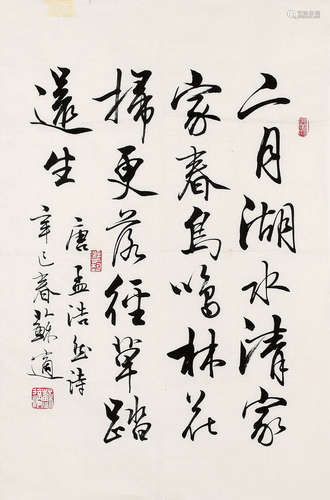 二月湖水清家
家春鳥鳴林花
掃更落徑草踏
還生
唐孟浩然詩
辛巳春蘇適